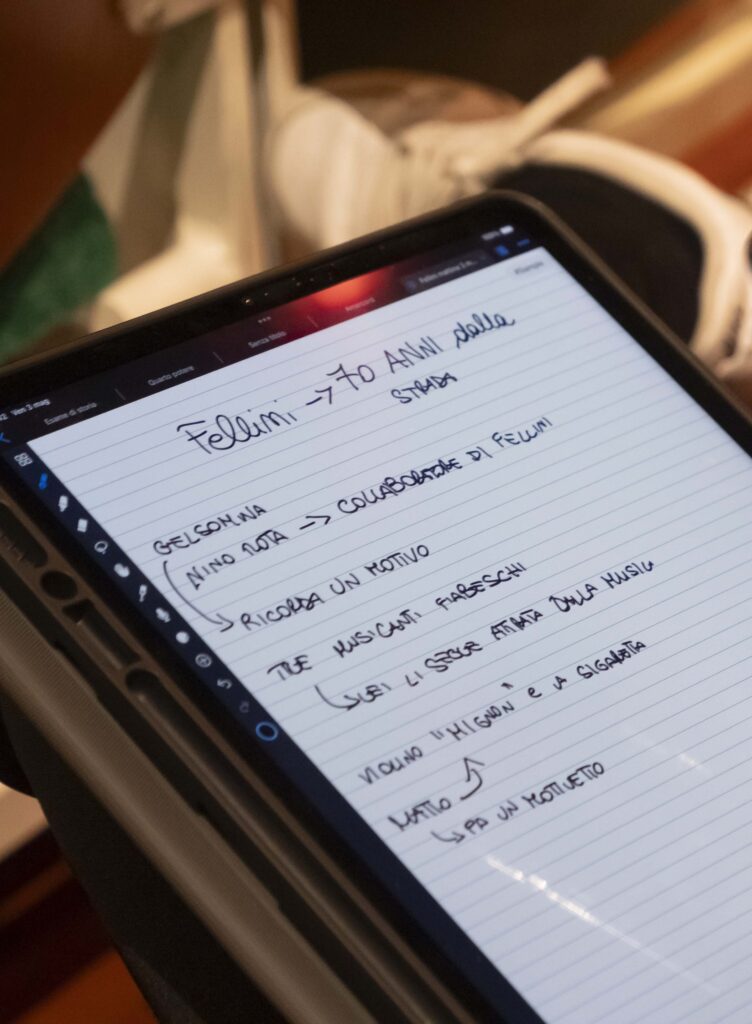 Ven 3 mag
Esame di storia
Quarto potere
Senza titolo
Amarcord
Fellini → 70 ANNI dalla
STRADA
GELSOMINA
NINO ROTA → COLLABORATORE DI FELLINI
RICORDA UN MOTIVO
TRE MUSICANTI FIABESCHI
LEI LI SEGUE ATTRATA DALLA MUSICA
VIOLINO "MIGNON" E LA SIGARETTA
MATTO
FA UN MOTIVETTO